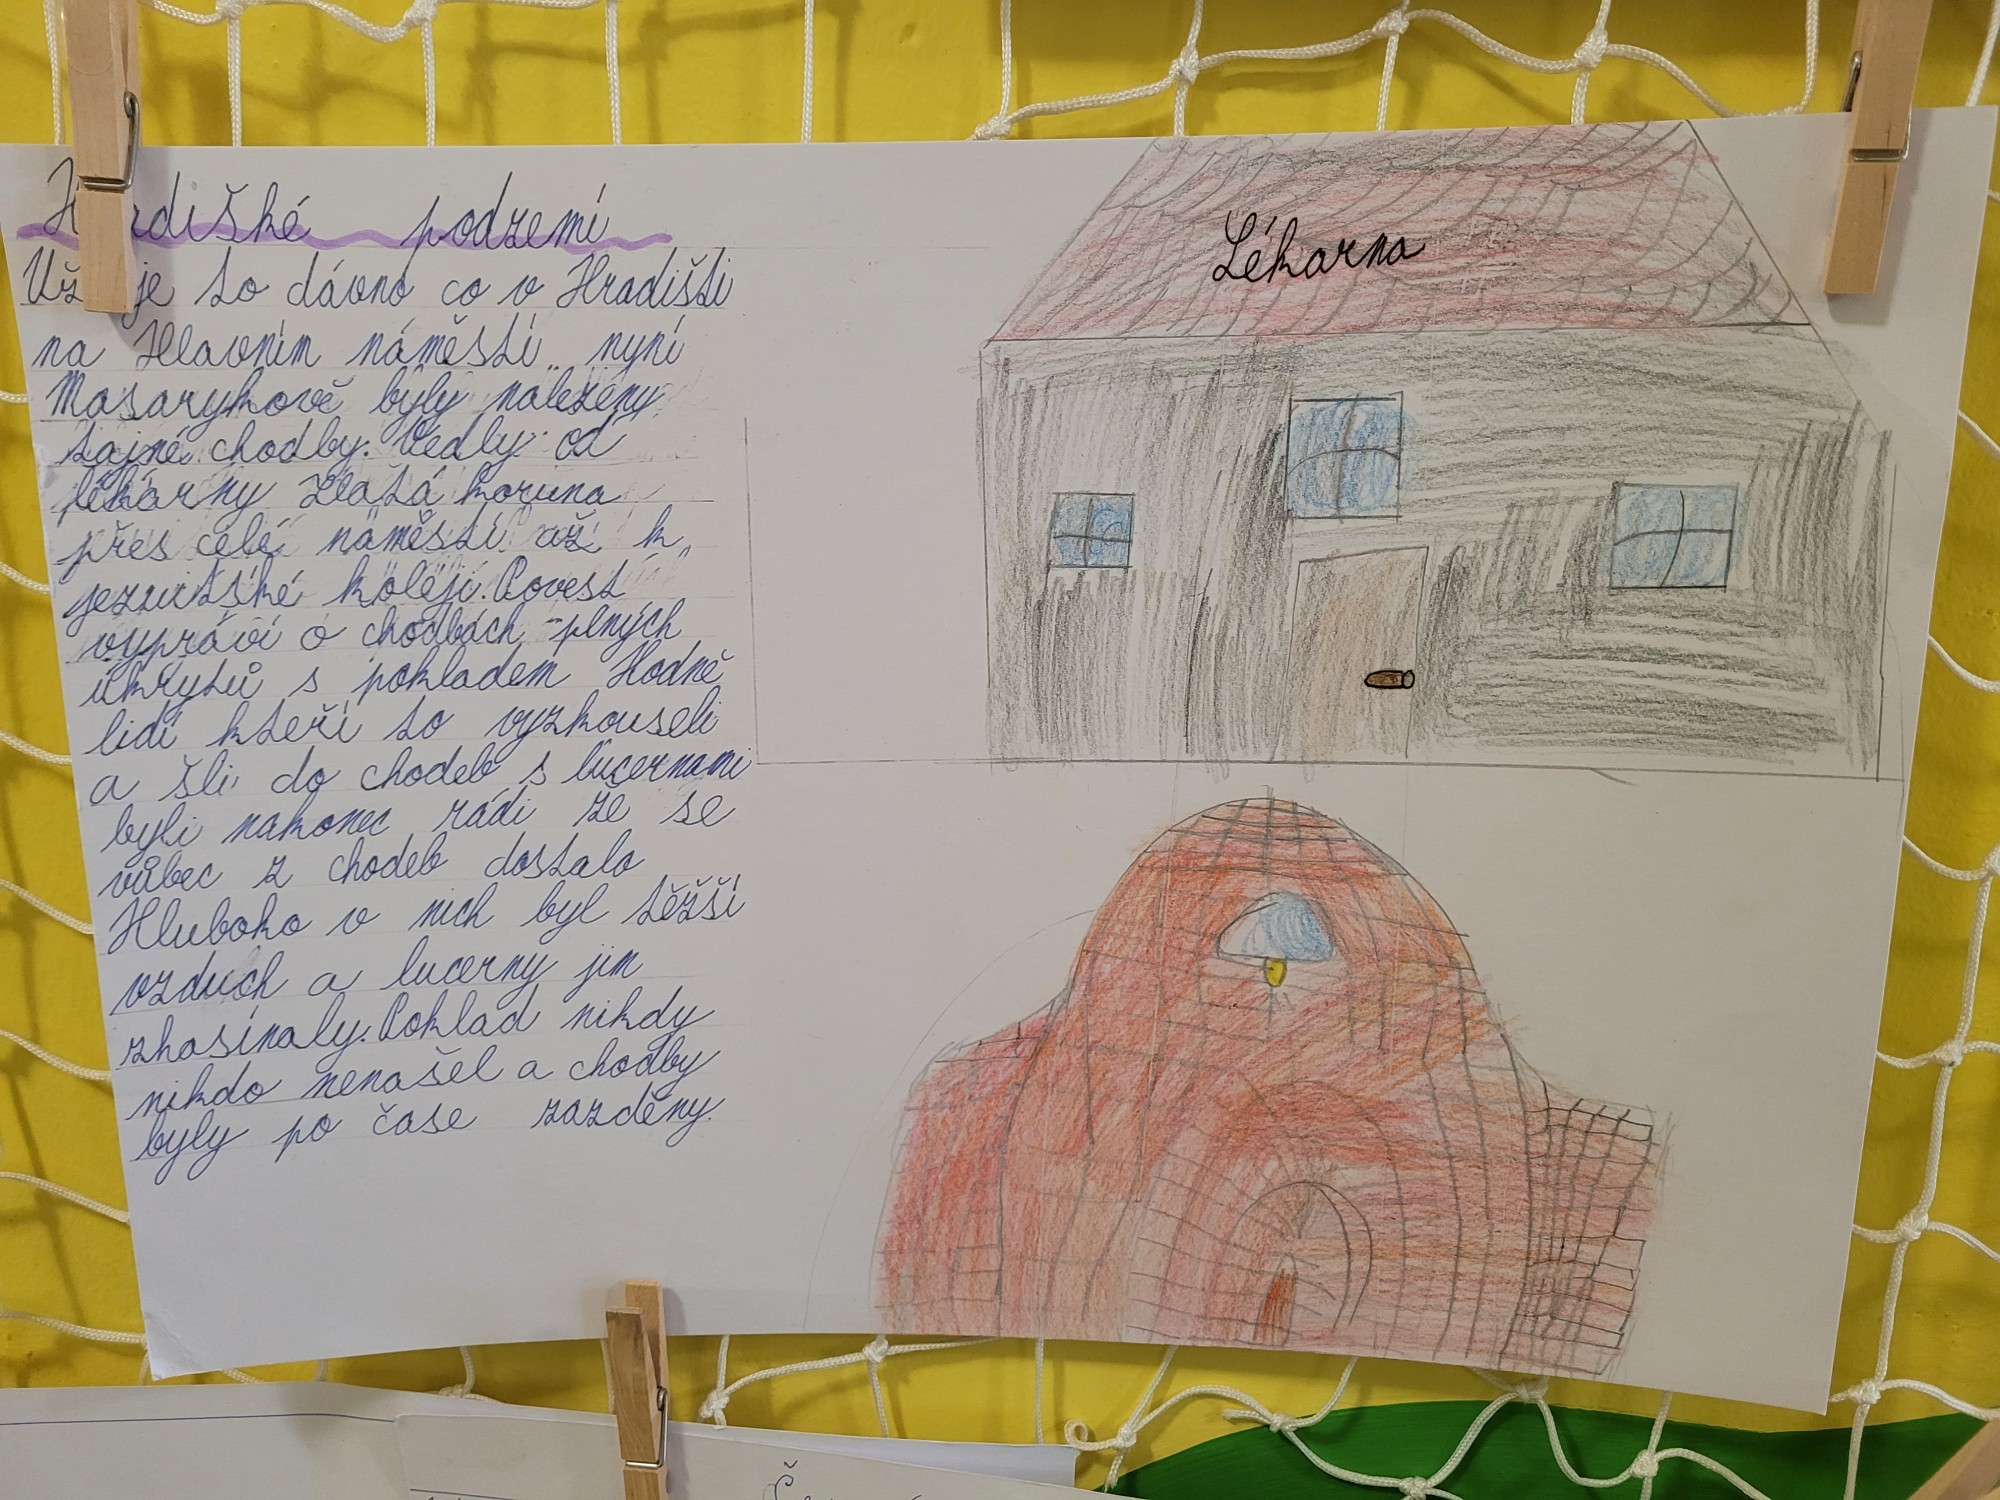 Hradišké podzemí
Už je to dávno co v Hradišti
na Hlavním náměstí nyní
Masarykově byly nalezeny
tajné chodby. Vedly od
lékárny Zlatá koruna
přes celé náměstí až k
jezuitské koleji. Povest
vypráví o chodbách plných
úkrytů s pokladem Hodně
lidí kteří to vyzkouseli
a šli do chodeb s lucernami
byli nakonec rádi že se
vůbec z chodeb dostalo
Hluboko v nich byl těžší
vzduch a lucerny jim
zhasínaly. Poklad nikdy
nikdo nenašel a chodby
byly po čase zazděny.
Lékarna